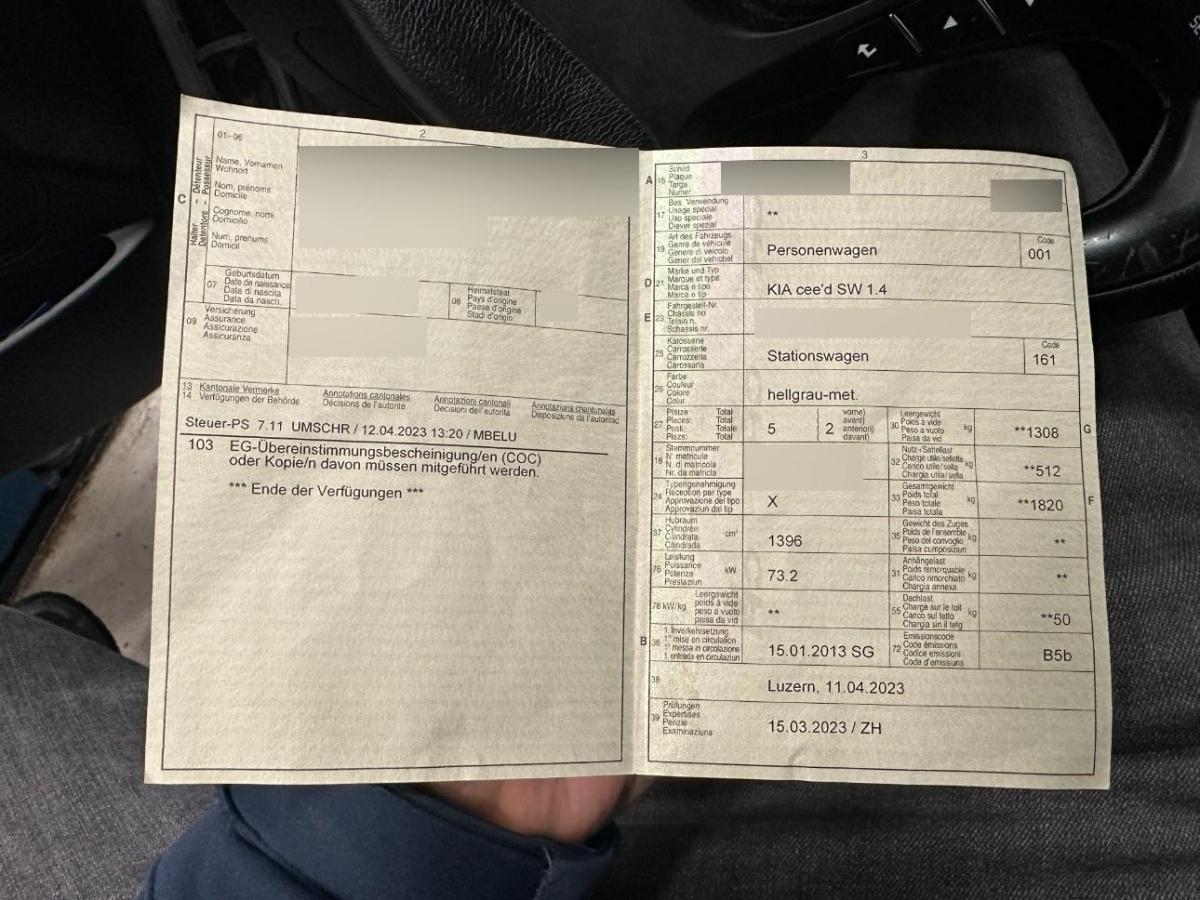 2
01-06
C
Halter - Détenteur
Detentore - Possessur
Name, Vornamen
Wohnort
Nom, prénoms
Domicile
Cognome, nomi
Domicilio
Num, prenums
Domicil
07
Geburtsdatum
Date de naissance
Data di nascita
Data da nasch.
08
Heimatstaat
Pays d'origine
Paese d'origine
Stadi d'origin
09
Versicherung
Assurance
Assicurazione
Assicuranza
13 Kantonale Vermerke Annotations cantonales Annotazioni cantonali Annotaziuns chantunalas
14 Verfügungen der Behörde Décisions de l'autorité Decisioni dell'autorità Disposiziuns da l'autoritad
Steuer-PS 7.11 UMSCHR / 12.04.2023 13:20 / MBELU
103 EG-Übereinstimmungsbescheinigung/en (COC)
oder Kopie/n davon müssen mitgeführt werden.
*** Ende der Verfügungen ***
3
A 15
Schild
Plaque
Targa
Numer
17
Bes. Verwendung
Usage spécial
Uso speciale
Diever spezial
**
19
Art des Fahrzeugs
Genre de véhicule
Genere di veicolo
Gener dal vehichel
Personenwagen
Code
001
D 21
Marke und Typ
Marque et type
Marca e tipo
Marca e tip
KIA cee'd SW 1.4
E 23
Fahrgestell-Nr.
Châssis no
Telaio n.
Schassis nr.
25
Karosserie
Carrosserie
Carrozzeria
Carossaria
Stationswagen
Code
161
26
Farbe
Couleur
Colore
Colur
hellgrau-met.
27
Plätze Total
Places: Total
Posti: Totale
Plazs: Total
5
2
vorne)
avant)
anteriori)
davant)
30
Leergewicht
Poids à vide
Peso a vuoto
Paisa da vid
kg
**1308
G
18
Stammnummer
N° matricule
N. di matricola
Nr. da matricla
32
Nutz-/Sattellast
Charge utile/sellette
Carico utile/sella
Chargia utila/sella
kg
**512
24
Typengenehmigung
Réception par type
Approvazione del tipo
Approvaziun dal tip
X
33
Gesamtgewicht
Poids total
Peso totale
Paisa totala
kg
**1820
F
37
Hubraum
Cylindrée
Cilindrata
Cilindrada
cm³
1396
35
Gewicht des Zuges
Poids de l'ensemble
Peso del convoglio
Paisa cumposiziun
kg
**
76
Leistung
Puissance
Potenza
Prestaziun
kW
73.2
31
Anhängelast
Poids remorquable
Carico rimorchiato
Chargia annexa
kg
**
78 kW/kg
Leergewicht
poids à vide
peso a vuoto
paisa da vid
**
55
Dachlast
Charge sur le toit
Carico sul tetto
Chargia sin il tetg
kg
**50
B 36
1. Inverkehrsetzung
1re mise en circulation
1a messa in circolazione
1. entrada en circulaziun
15.01.2013 SG
72
Emissionscode
Code émissions
Codice emissioni
Code d'emissiuns
B5b
38
Luzern, 11.04.2023
39
Prüfungen
Expertises
Perizie
Examinaziuns
15.03.2023 / ZH